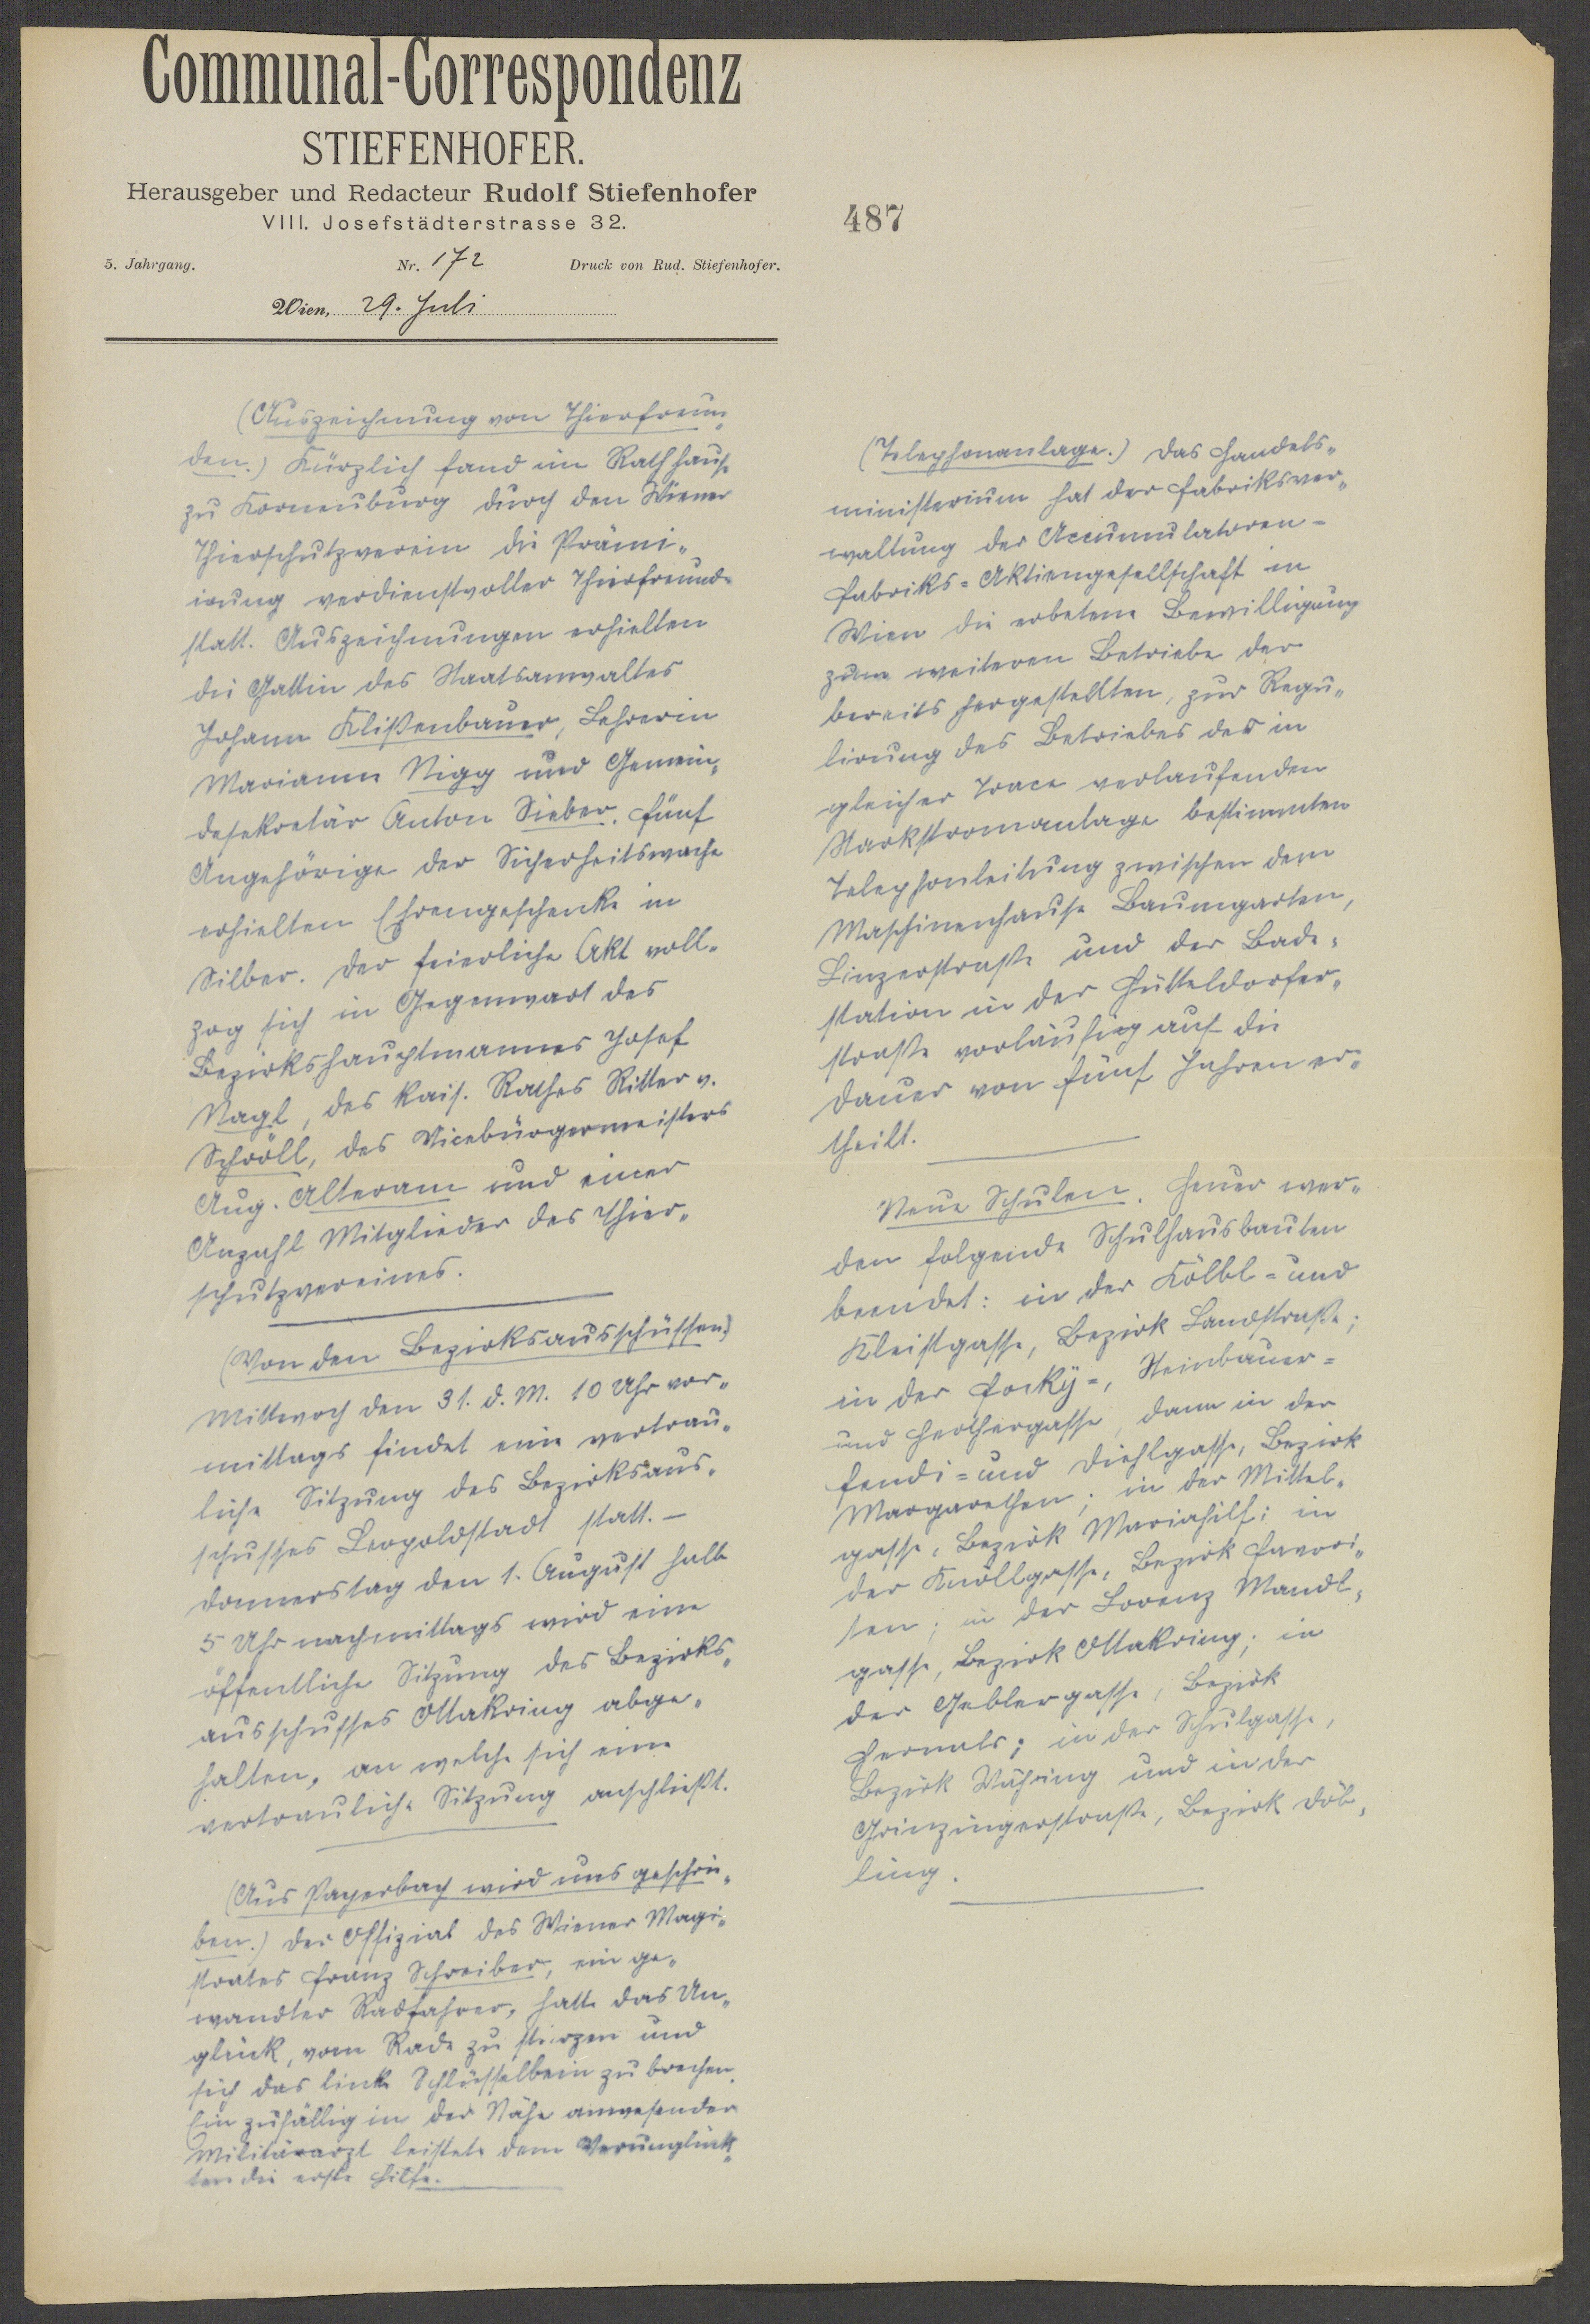 Communal-Correspondenz
STIEFENHOFER.
Herausgeber und Redacteur Rudolf Stiefenhofer
VIII. Josefstädterstrasse 32.
5. Jahrgang. Nr. 172 Druck von Rud. Stiefenhofer.
Wien, 29. Juli
487
(Auszeichnung von Thierfreun-
den.) Kürzlich fand im Rathhause
zu Korneuburg durch den Wiener
Thierschutzverein die Prämi-
irung verdienstvoller Thierfreunde
statt. Auszeichnungen erhielten
die Gattin des Staatsanwaltes
Johann Klißenbauer, Lehrerin
Marianne Nigg und Gemein-
desekretär Anton Sieber. Fünf
Angehörige der Sicherheitswache
erhielten Ehrengeschenke in
Silber. Der feierliche Akt voll-
zog sich in Gegenwart des
Bezirkshauptmannes Josef
Nagl, des kais. Rathes Ritter v.
Schröll, des Vicebürgermeisters
Aug. Alteram und einer
Anzahl Mitglieder des Thier-
schutzvereines.
(Von den Bezirksausschüssen)
Mittwoch den 31. d. M. 10 Uhr vor-
mittags findet eine vertrau-
liche Sitzung des Bezirksaus-
schusses Leopoldstadt statt. –
Donnerstag den 1. August halb
5 Uhr nachmittags wird eine
öffentliche Sitzung des Bezirks-
ausschusses Ottakring abge-
halten, an welche sich eine
vertrauliche Sitzung anschließt.
(Aus Payerbach wird uns geschrie-
ben.) Der Offizial des Wiener Magi-
strates Franz Schreiber, ein ge-
wandter Radfahrer, hatte das Un-
glück, vom Rade zu stürzen und
sich das linke Schlüsselbein zu brechen.
Ein zufällig in der Nähe anwesender
Militärarzt leistete dem Verunglück-
ten die erste Hilfe.
(Telephonanlage.) Das Handels-
ministerium hat der Fabriksver-
waltung der Accumulatoren-
Fabriks-Aktiengesellschaft in
Wien die erbetene Bewilligung
zum weiteren Betriebe der
bereits hergestellten, zur Regu-
lirung des Betriebes der in
gleicher Trace verlaufenden
Starkstromanlage bestimmten
Telephonleitung zwischen dem
Maschinenhause Baumgarten,
Linzerstraße und der Bade-
station in der Hütteldorfer-
straße vorläufig auf die
Dauer von fünf Jahren er-
theilt.
Neue Schulen. Heuer wer-
den folgende Schulhausbauten
beendet: in der Kölbl- und
Kleistgasse, Bezirk Landstraße;
in der Focky-, Steinbauer-
und Herthergasse, dann in der
Fendi- und Diehlgasse, Bezirk
Margarethen; in der Mittel-
gasse, Bezirk Mariahilf; in
der Knöllgasse, Bezirk Favori-
ten; in der Lorenz Mandl-
gasse, Bezirk Ottakring; in
der Geblergasse, Bezirk
Hernals; in der Schulgasse,
Bezirk Währing und in der
Grinzingerstraße, Bezirk Döb-
ling.